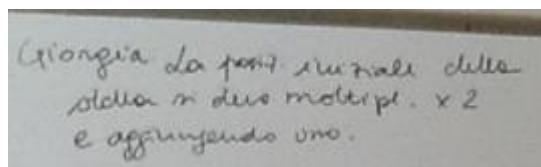 Giorgia La posiz. iniziale della
stella si deve moltipl. x 2
e aggiungendo uno.